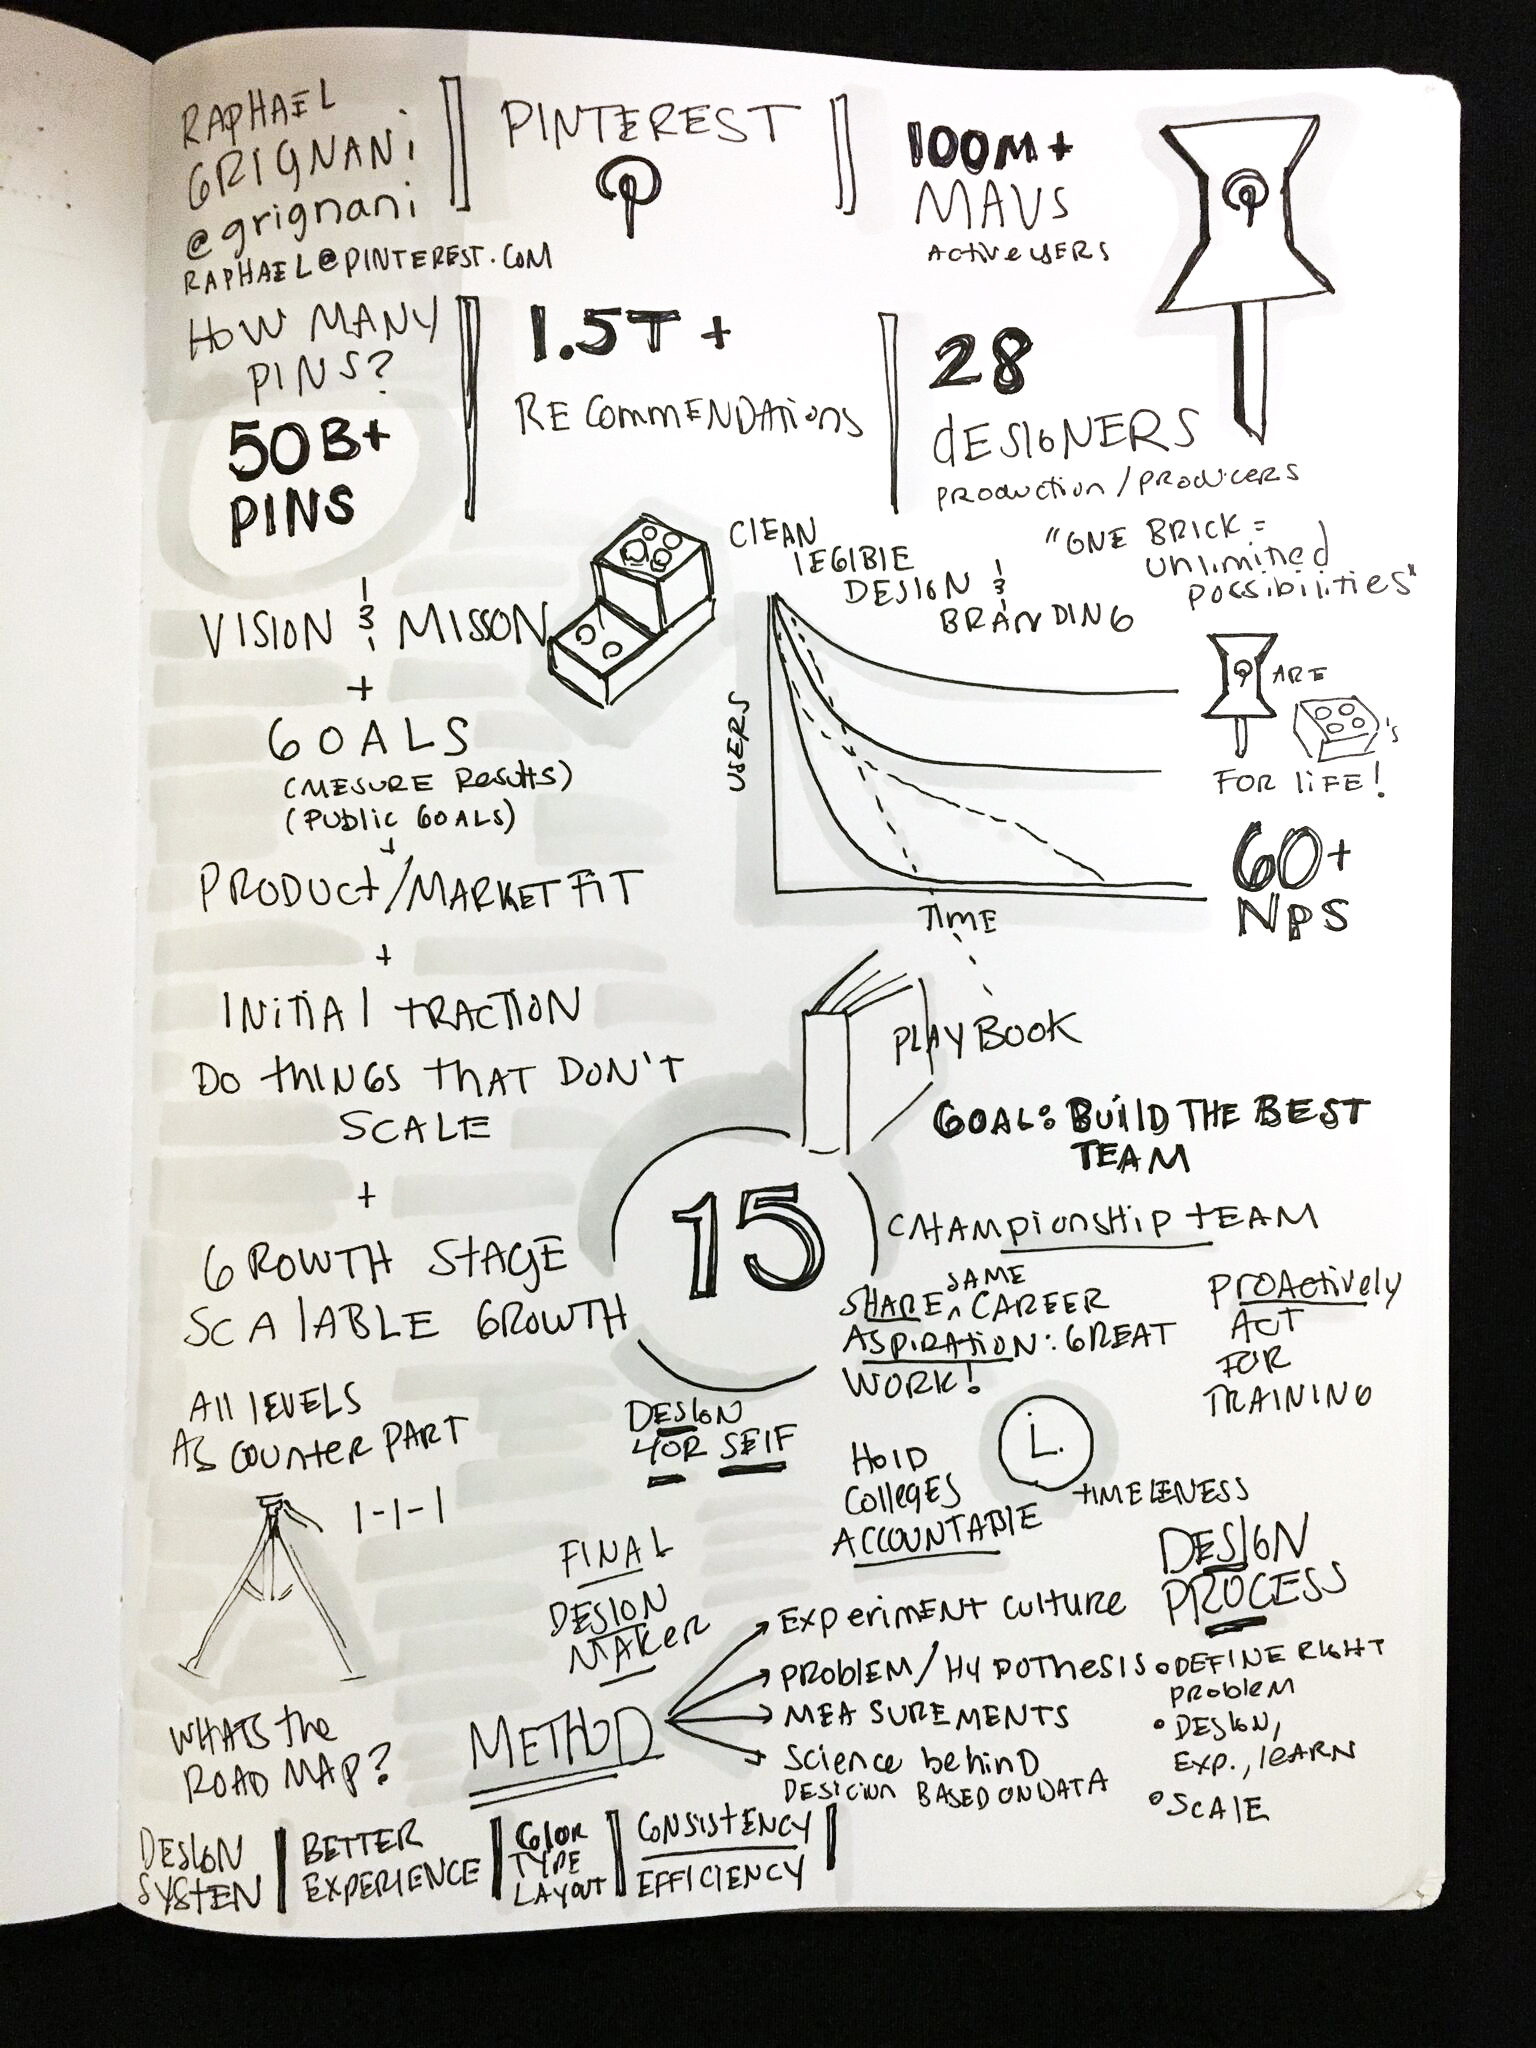 RAPHAEL
GRIGNANi
@grignani
RAPHAEL@PINTEREST.COM
PINTEREST
100M+
MAUS
Active USERS
HOW MANY
PINS?
50B+
PINS
1.5T+
RECOMMENDATiONS
28
dESIGNERS
PRODUCTION/PRODUCERS
VISION & MISSON
+
GOALS
(MESURE RESults)
(Public GOALS)
+
PRODUCT/MARKET FIT
+
INITIAL TRACTION
DO tHINGS tHAT DON'T
SCALE
+
GROWTH STAGE
SCALABLE GROWTH
CLEAN
LEGIBLE
DESIGN &
BRANDING
"ONE BRICK =
UNLIMITED
POSSIBILITIES"
USERS
TIME
ARE
's
FOR LIFE!
60+
NPS
PLAYBOOK
GOAL: BUILD THE BEST
TEAM
15
CHAMPIONSHIP TEAM
SAME
SHARE ^ CAREER
ASPIRATION: GREAT
WORK!
PROActively
ACT
FOR
TRAINING
All LEVELS
AS COUNTER PART
1-1-1
DESIGN
4OR SELF
HOLD
COLLEGES
ACCOUNTABLE
TIMELENESS
FINAL
DESIGN
MAKER
WHATS the
ROAD MAP?
METHOD
EXPERIMENT CULTURE
PROBLEM/HYPOTHESIS
MEASUREMENTS
SCIENCE bEHIND
DESICION BASED ON DATA
DESIGN
PROCESS
• DEFINE RIGHT
PROBLEM
• DESIGN,
EXP., LEARN
• SCALE
DESIGN
SYSTEN
BETTER
EXPERIENCE
COLOR
TYPE
LAYOUT
CONSISTENCY
EFFICIENCY